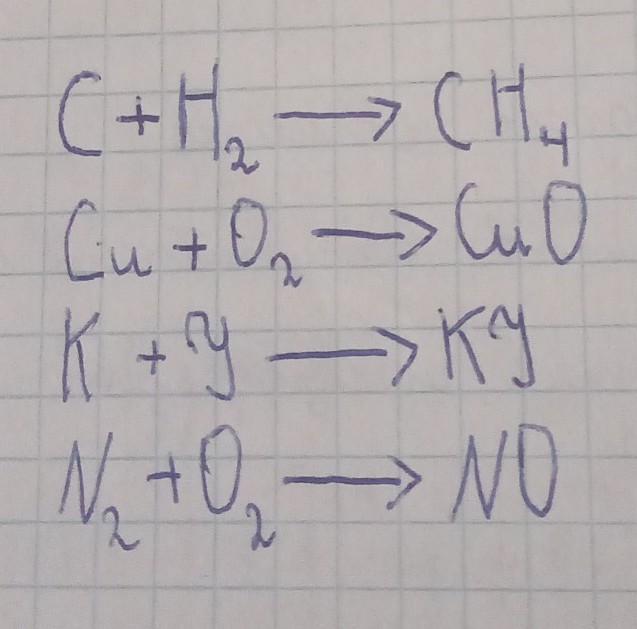 C + H₂ → CH₄
Cu + O₂ → CuO
K + Y → KY
N₂ + O₂ → NO